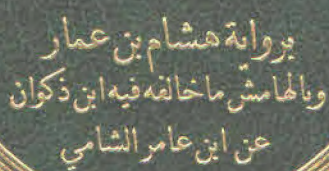 برواية هشام بن عمار
وبالهامش ما خالفه فيه ابن ذكوان
عن ابن عامر الشامي